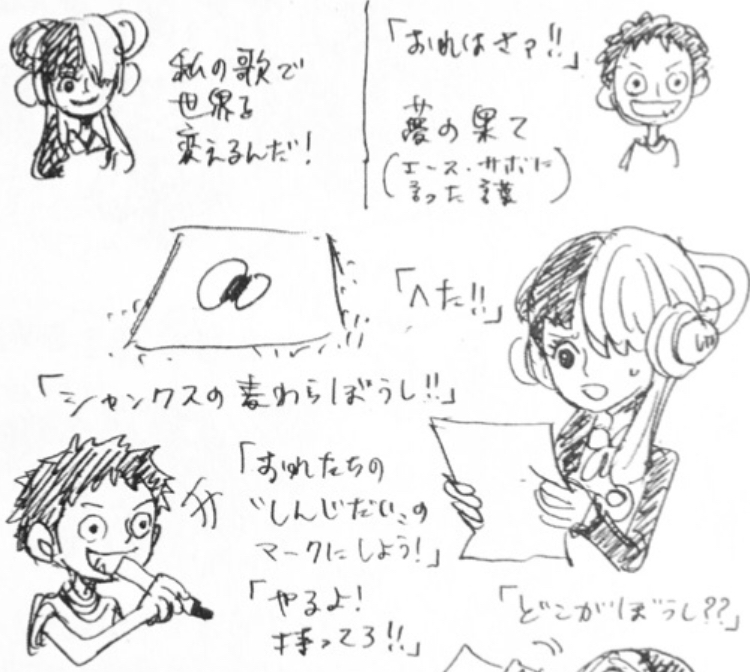 私の歌で
世界を
変えるんだ!
「おれはさァ!!」
夢の果て
(エース・サボに
言った言葉)
「へた!!」
「シャンクスの麦わらぼうし!!」
「おれたちの
"しんじだい"の
マークにしよう!」
「やるよ!
持ってろ!!」
「どこがぼうし??」